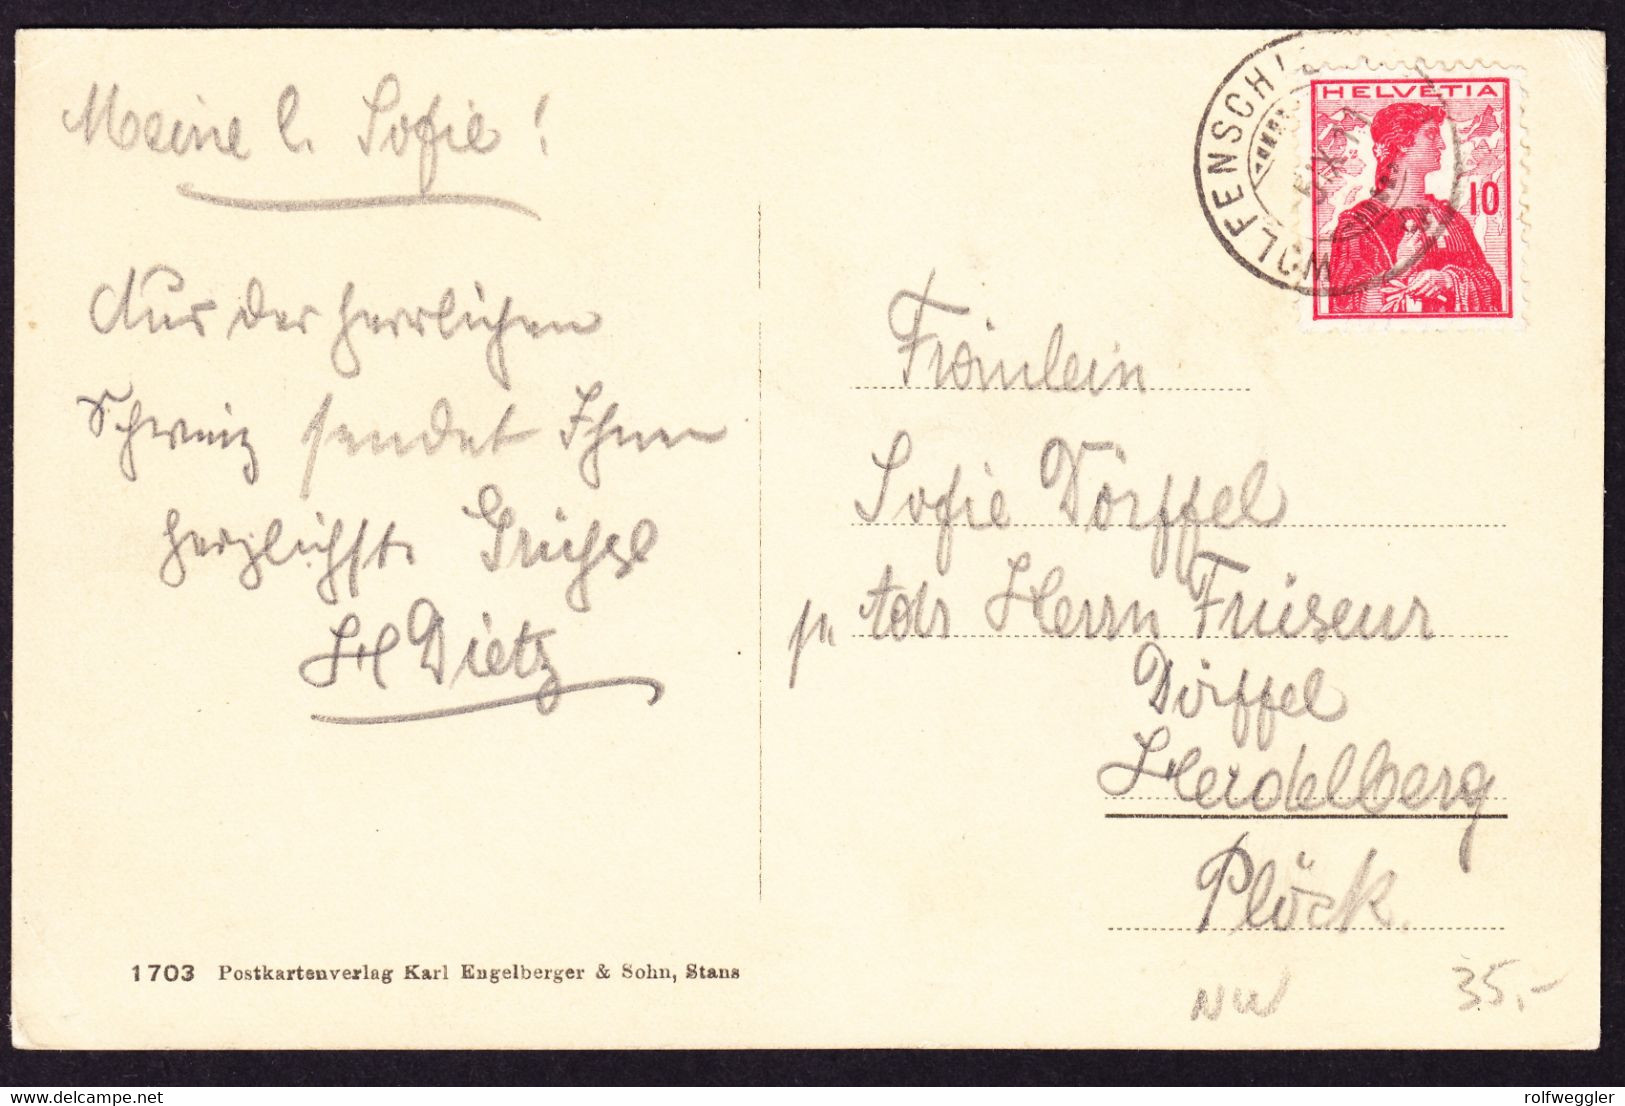 Meine l. Sofie!
Aus der herrlichen
Schweiz sendet Ihnen
herzlichste Grüße
H Dietz
1703 Postkartenverlag Karl Engelberger & Sohn, Stans
HELVETIA
10
WOLFENSCHI
Fräulein
Sofie Dörffel
p. Adr Herrn Friseur
Dörffel
Heidelberg
Plöck.
NW 35,-
delcampe.net
rolfweggler